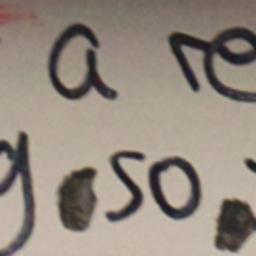 a re
g.so.